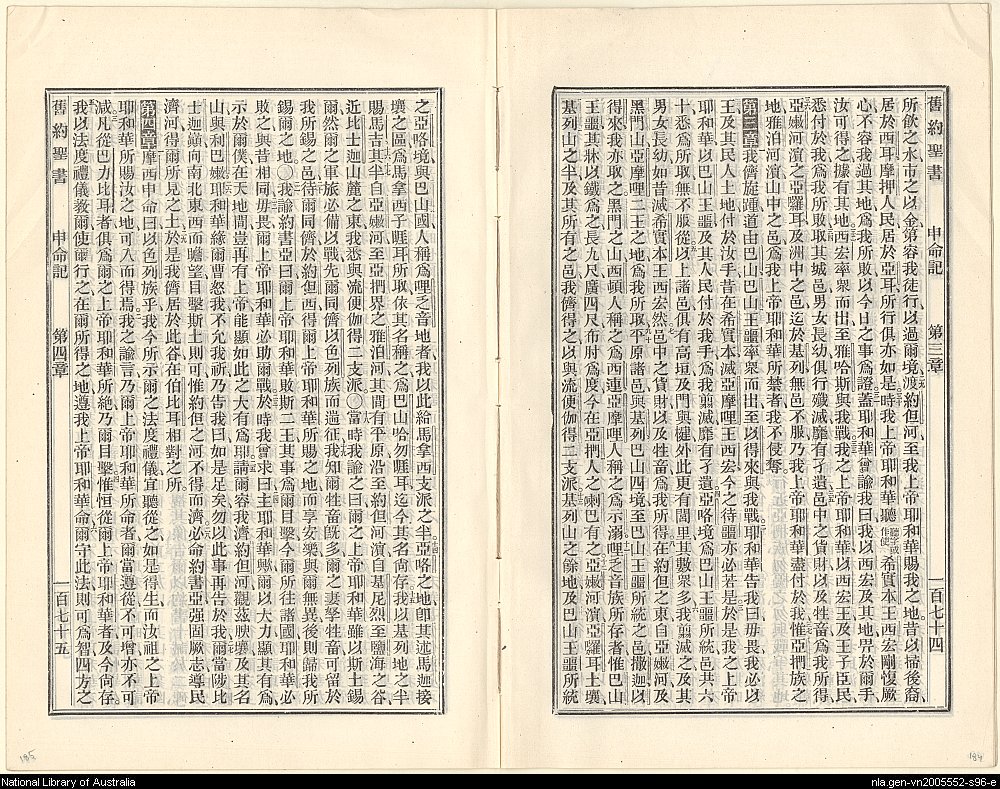 舊約聖書 申命記 第三章 一百七十四
所飲之水、市之以金、第容我徒行以過爾境、渡約但河、至我上帝耶和華賜我之地、昔以掃後裔
居於西耳、摩押人民居於亞耳、所行俱亦如是、時我上帝耶和華聽希實本王西宏剛愎厥
心、不容我過其地、爲我所敗、以今日之事爲證、蓋耶和華曾諭我曰、我以西宏及其地畀於爾手、
汝可得之、據有其地、西宏率衆而出、至雅哈斯與我戰、我之上帝耶和華以西宏王及王子臣民、
悉付於我、爲我所敗、取其城邑、男女長幼、俱行殲滅、靡有孑遺、邑中之貨財、以及牲畜、爲我所得、
亞嫩河濱之亞羅耳、及洲中之邑、迄於基列、無邑不服、乃我上帝耶和華盡付於我、惟亞捫族之
地、雅泊河濱、山中之邑、爲我上帝耶和華所禁者、我不侵奪、
第三章 我儕旋踵、道由巴山、巴山王噩率衆而出、至以得來與我戰、耶和華告我曰、毋畏、我必以
王及其民人土地付於汝手、昔在希實本滅亞摩哩王西宏、今之待噩亦必若是、於是我之上帝
耶和華以巴山王噩及其人民付於我手、爲我翦滅、靡有孑遺、亞咯境爲巴山王噩所統、邑共六
十、悉爲所取、無不服從、以上諸邑、俱有高垣及門與楗、外此更有閭里、其數衆多、我翦滅之、及其
男女長幼、如昔滅希實本王西宏然、邑中之貨財、以及牲畜、爲我所得、在約但之東、自亞嫩河及
黑門山、亞摩哩二王之地、爲我所取、平原諸邑、與基列巴山四境、至巴山王噩所統之邑、撒迦以
得來、我亦取之、黑門之山、西頓人稱之爲西連、亞摩哩人稱之爲示溺、哩乏音族所存者、惟巴山
王噩、其牀以鐵爲之、長九尺、廣四尺、布肘爲度、今在亞捫人之喇巴、有之、亞嫩河濱、亞羅耳土壤、
基列山之半、及其所有之邑、我儕得之、以與流便伽得二支派、基列山之餘地、及巴山王噩所統
之亞咯境、與巴山國、人稱爲哩乏音地者、我以此給馬拿西支派之半、亞咯之地、卽其述馬迦接
壤之區、爲馬拿西子睚耳所取、依其名稱之爲巴山哈勿睚耳、迄今其名尙存、我以基列地之半、
賜馬吉、其半自亞嫩河至亞捫界之雅泊河、其間有平原、沿至約但河濱、自基尼烈至鹽海之谷、
近比士迦山麓之東、我悉與流便伽得二支派、○當時我諭之曰、爾之上帝耶和華雖以斯土錫
爾、然爾之軍旅必備以戰、先爾同儕以色列族而遄征、我知爾牲畜旣多、爾之妻孥牲畜可留於
我所錫之邑、待爾同儕於約但西、得爾上帝耶和華所賜之地、而享安樂、與爾無異、後則歸我所
錫爾之地、○我諭約書亞曰、爾上帝耶和華敗斯二王、其事爲爾目擊、今爾所往諸國、耶和華必
敗之、與昔相同、毋畏、爾上帝耶和華必助爾戰、於時我曾求曰、主耶和華歟、爾以大力顯其有爲、
示於爾僕、在天地間、豈再有上帝能顯如此之大有爲耶、請爾容我濟約但河、觀茲映壤、及其名
山、與利巴嫩、耶和華緣爾曹怒我、不允我祈、乃告我曰、如是足矣、勿以此事再告於我、爾當陟比
士迦巓、向南北東西而瞻望、目擊斯土則可、惟約但之河不得而濟、必命約書亞強固厥志、導民
濟河、得爾所見之土、於是我儕居於此谷、在伯比耳相對之所、
第四章 摩西申命曰、以色列族乎、我今所示爾之法度禮儀、宜聽從之、如是得生、而汝祖之上帝
耶和華所賜汝之地、可入而得焉、我之諭言、乃爾上帝耶和華所命者、爾當遵從、不可增、亦不可
減、凡從巴力比耳者、俱爲爾之上帝耶和華所絕、乃爾目擊、惟恒從爾上帝耶和華者、及今尙存、
我以法度禮儀敎爾、使爾行之、在爾所得之地、遵我上帝耶和華命、爾守此法、則可爲智、四方之
舊約聖書 申命記 第四章 一百七十五
185
184
National Library of Australia
nla.gen-vn2005552-s96-e